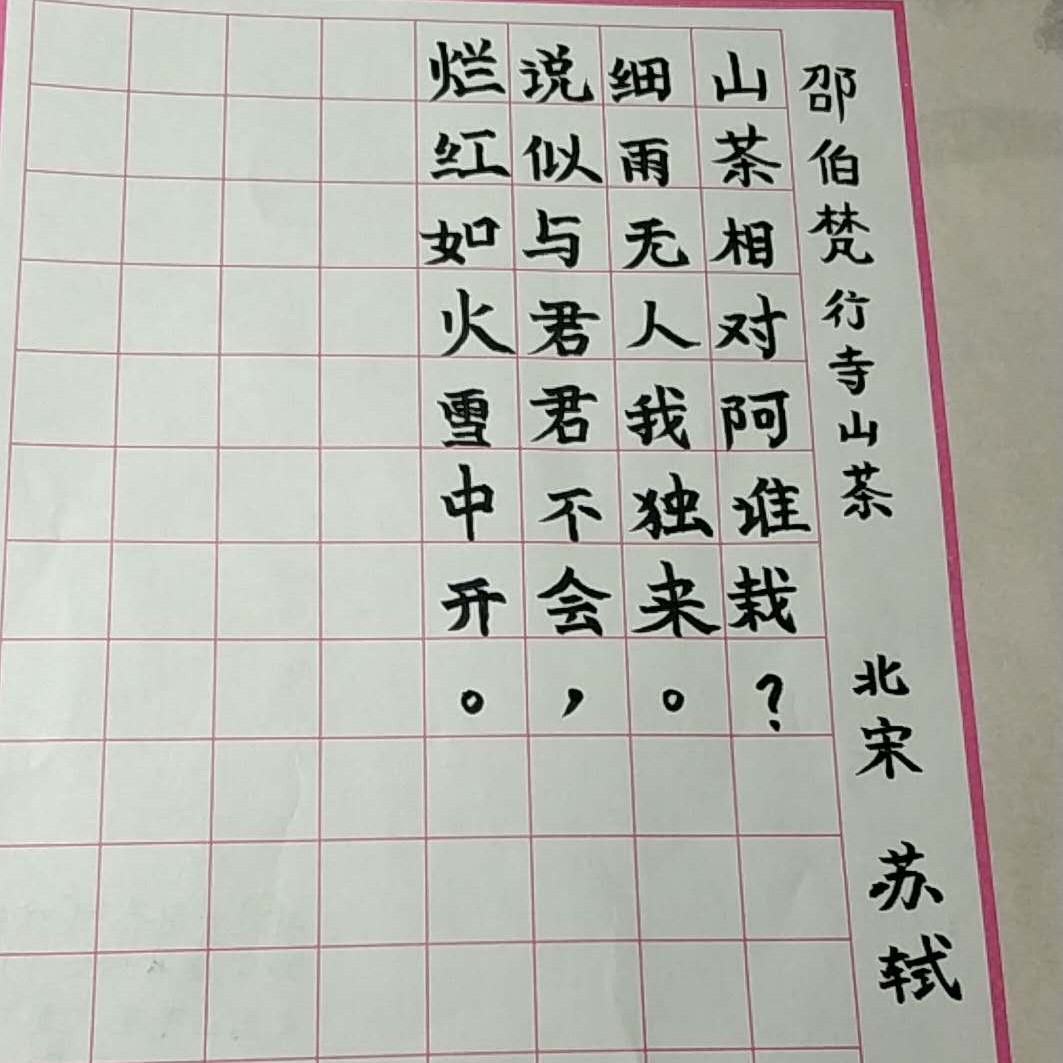 邵伯梵行寺山茶 北宋 苏轼
山茶相对阿谁栽?
细雨无人我独来。
说似与君君不会,
烂红如火雪中开。